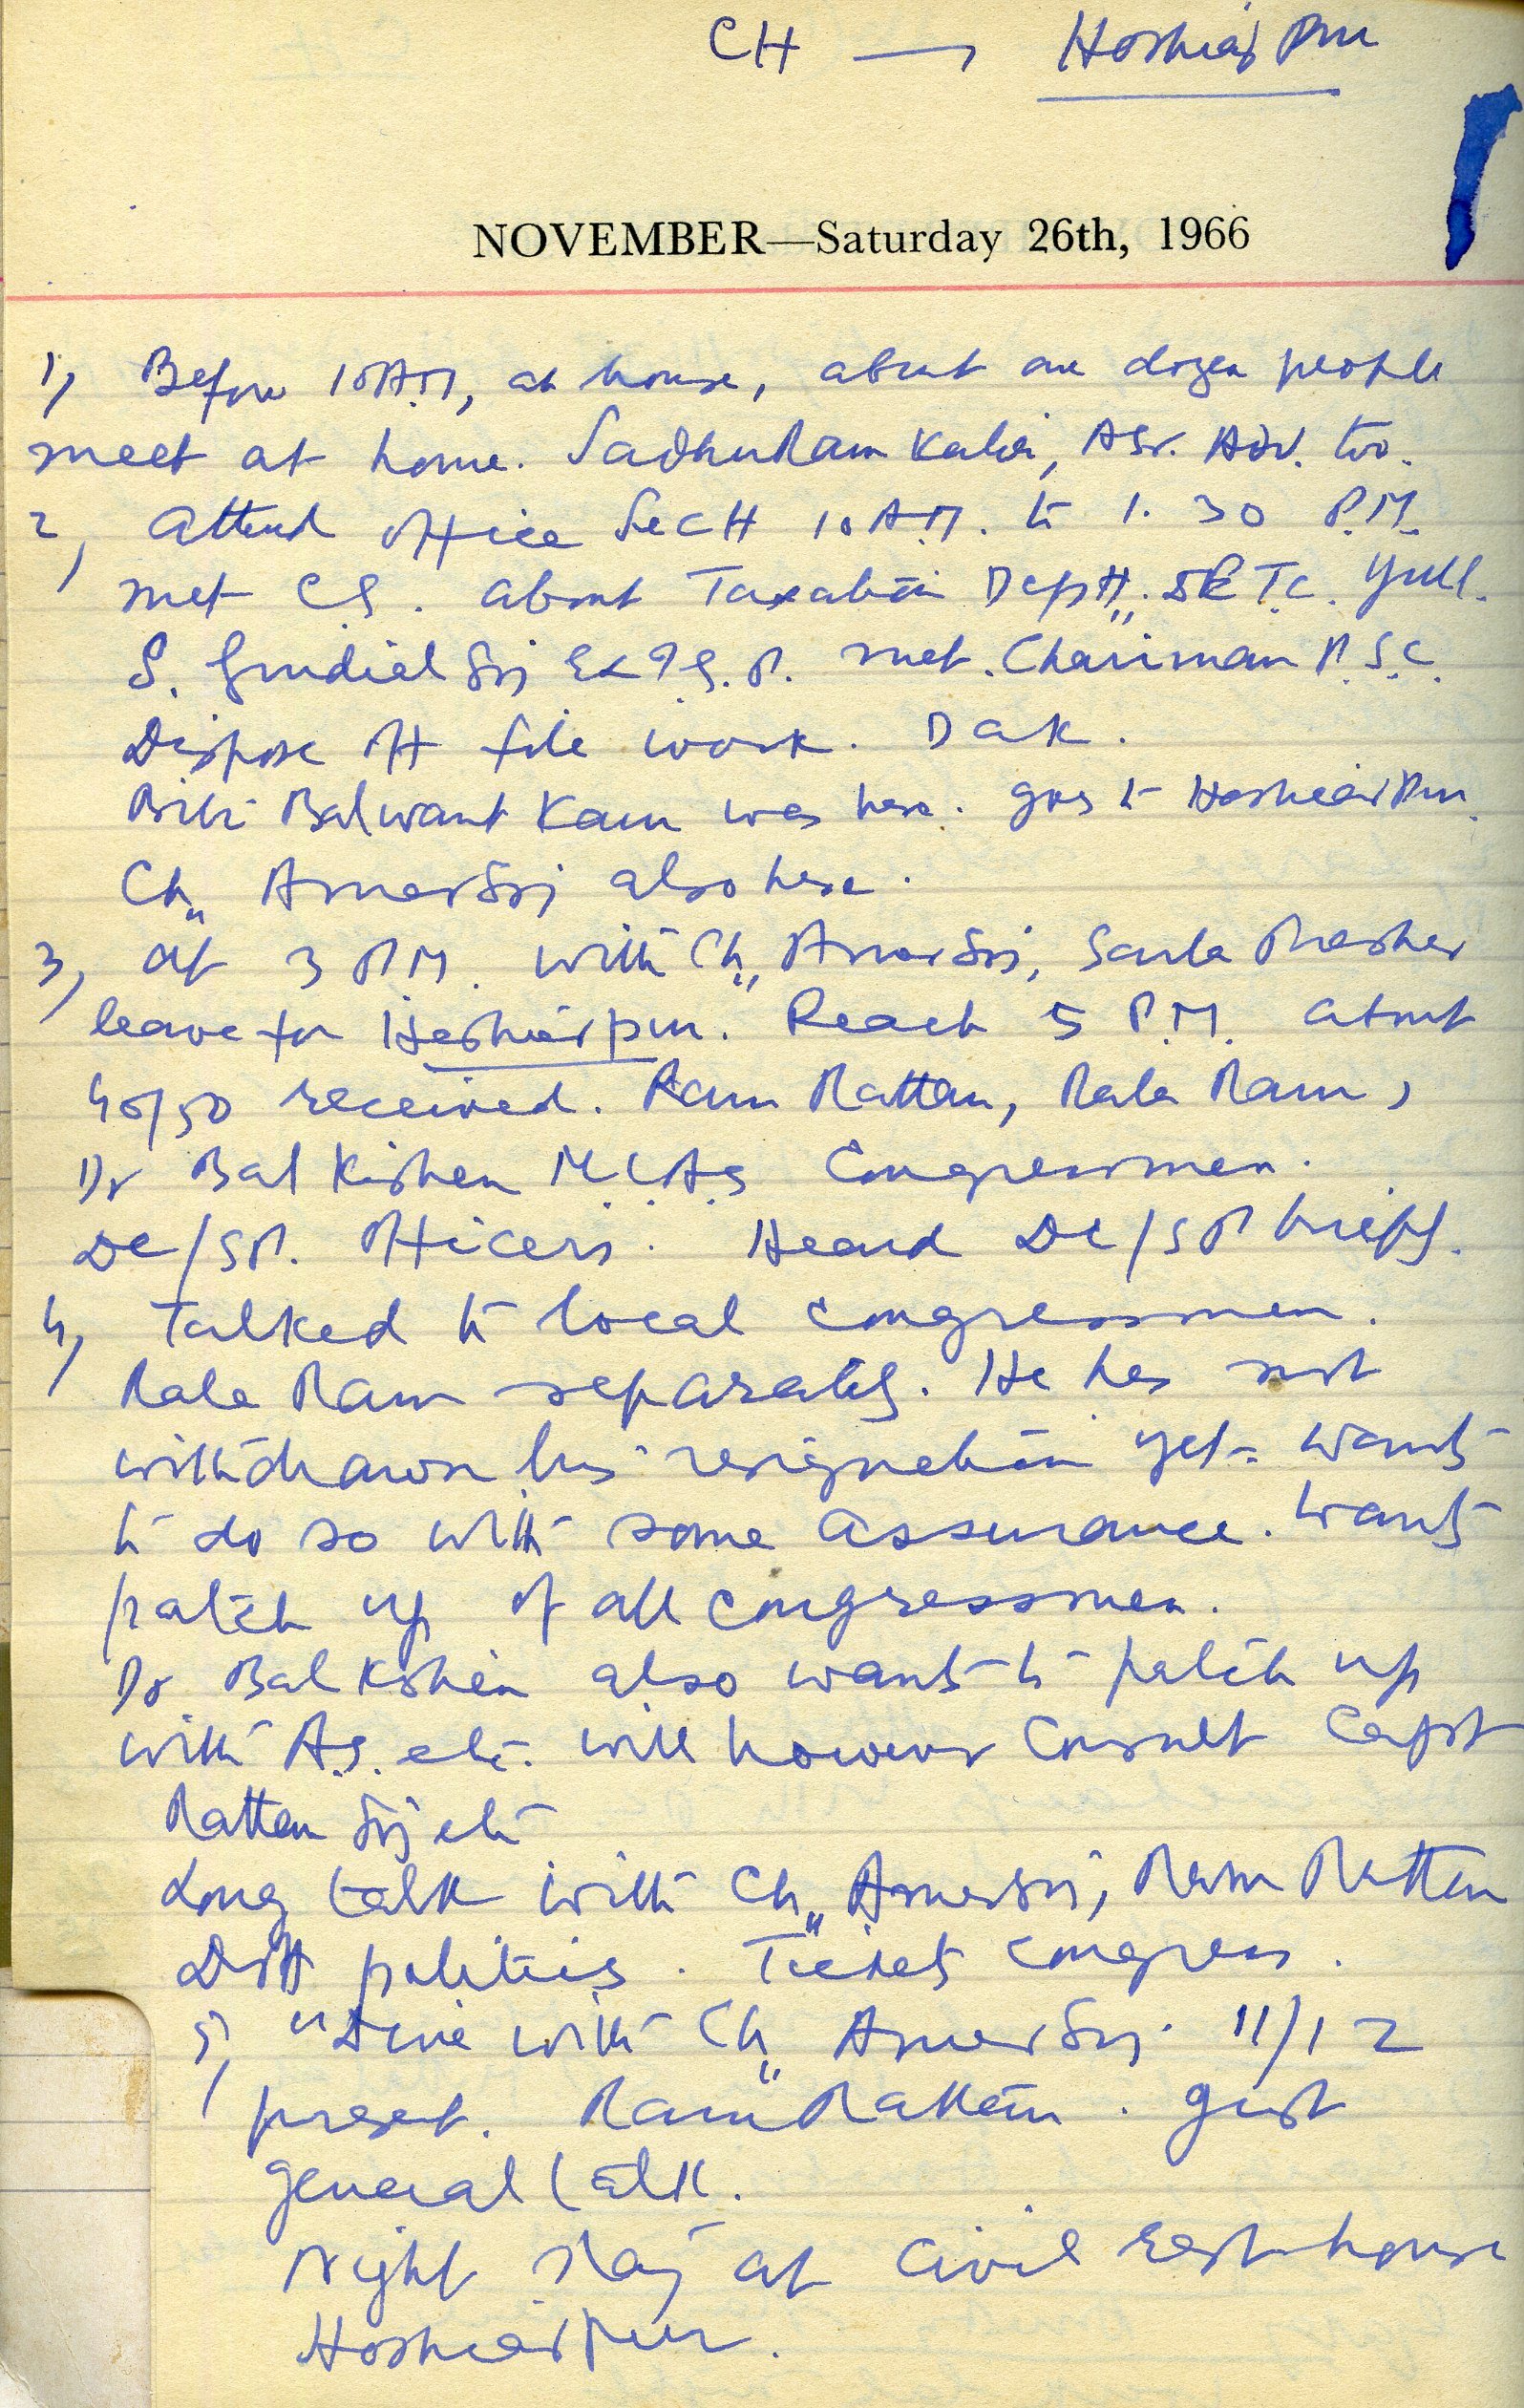 CH — Hoshiarpur
NOVEMBER—Saturday 26th, 1966
1, Before 10 A.M, at house, about one dozen people
meet at home. Sadhu Ram Kalia, Asr. Adv. too.
2, Attend office Sectt 10 A.M. to 1.30 P.M.
met C.S. about Taxation Deptt.
S. Gurdial Sgj Ex I.G.P. met. Chairman P.S.C.
Dispose off file work. Dak.
Bibi Balwant Kaur was here. goes to Hoshiarpur.
Ch,, Amar Sgj also here.
3, At 3 P.M. with Ch,, Amar Sgj, Sarla Prasher
leave for Hoshiarpur. Reach 5 P.M. about
40/50 received. Ram Rattan, Rala Ram,
Dr Bal Kishen M.L.A.s Congressmen.
DC/SP. Officers. Heard DC/SP briefly.
4, Talked to local Congressmen.
Rala Ram separately. He has not
withdrawn his resignation yet. wants
to do so with some assurance. wants
patch up of all Congressmen.
Dr Bal Kishen also wants to patch up
with A.S. etc. will however consult Capt
Rattan Sgj etc
Long talk with Ch,, Amar Sgj, Ram Rattan
Distt politics. Tickets Congress.
5, Dine with Ch,, Amar Sgj. 11/12
present. Ram Rattan. Just
general talk.
Night stay at Civil Rest house
Hoshiarpur.